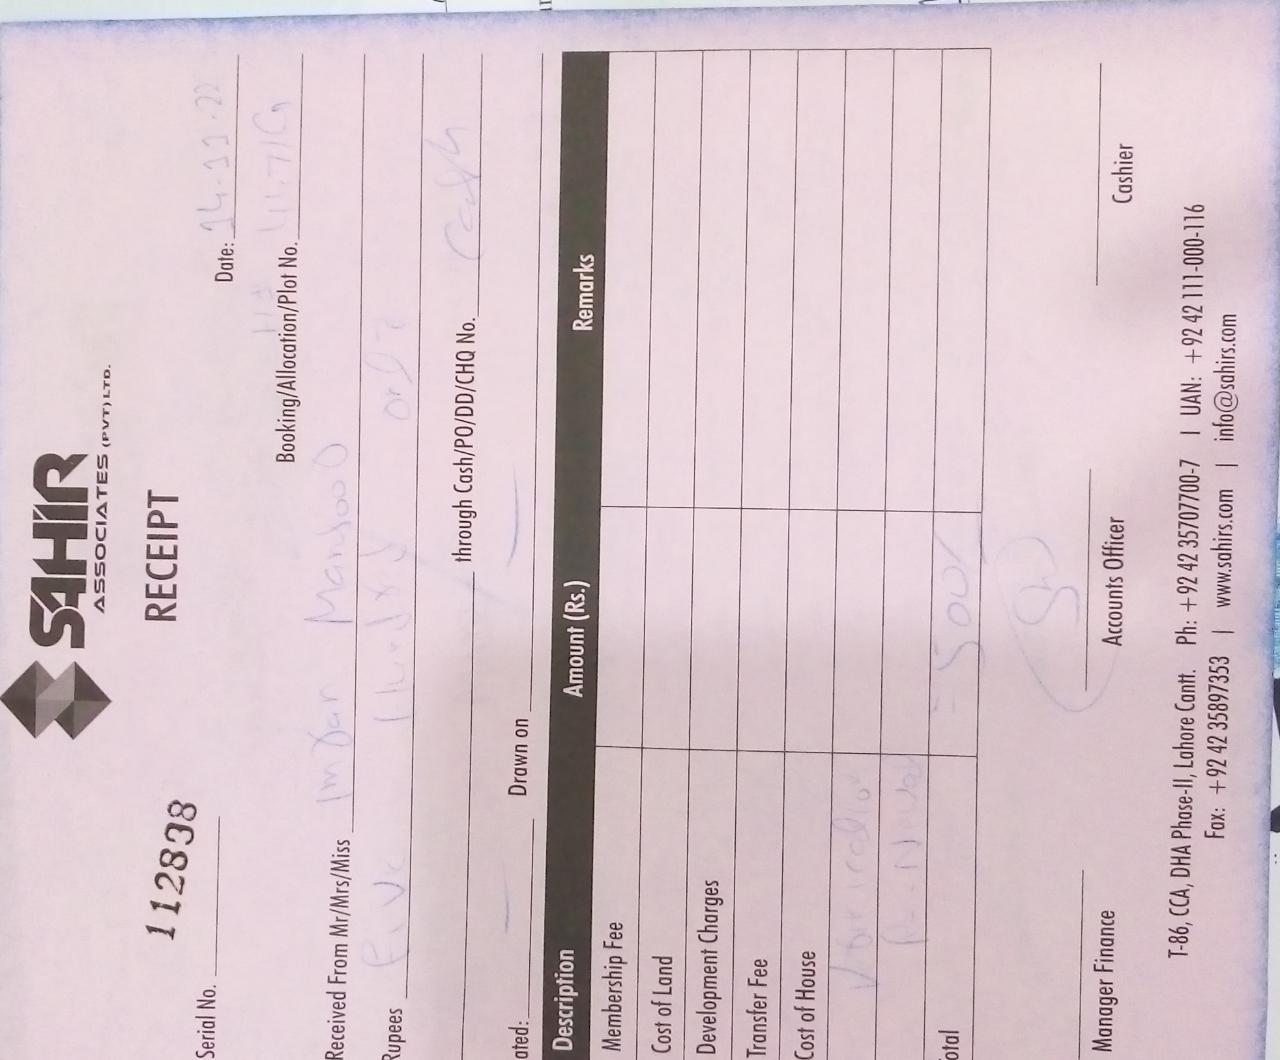 SAHIR
ASSOCIATES (PVT) LTD.
RECEIPT
112838
Serial No.
Date: 14-11-22
Booking/Allocation/Plot No. 447/G
Received From Mr/Mrs/Miss Imran Mansoo
Rupees Five Hundred only
through Cash/PO/DD/CHQ No. Cash
ated: Drawn on
Description Amount (Rs.) Remarks
Membership Fee
Cost of Land
Development Charges
Transfer Fee
Cost of House
otal = 500/
Manager Finance Accounts Officer Cashier
T-86, CCA, DHA Phase-II, Lahore Cantt. Ph: +92 42 35707700-7 | UAN: +92 42 111-000-116
Fax: +92 42 35897353 | www.sahirs.com | info@sahirs.com